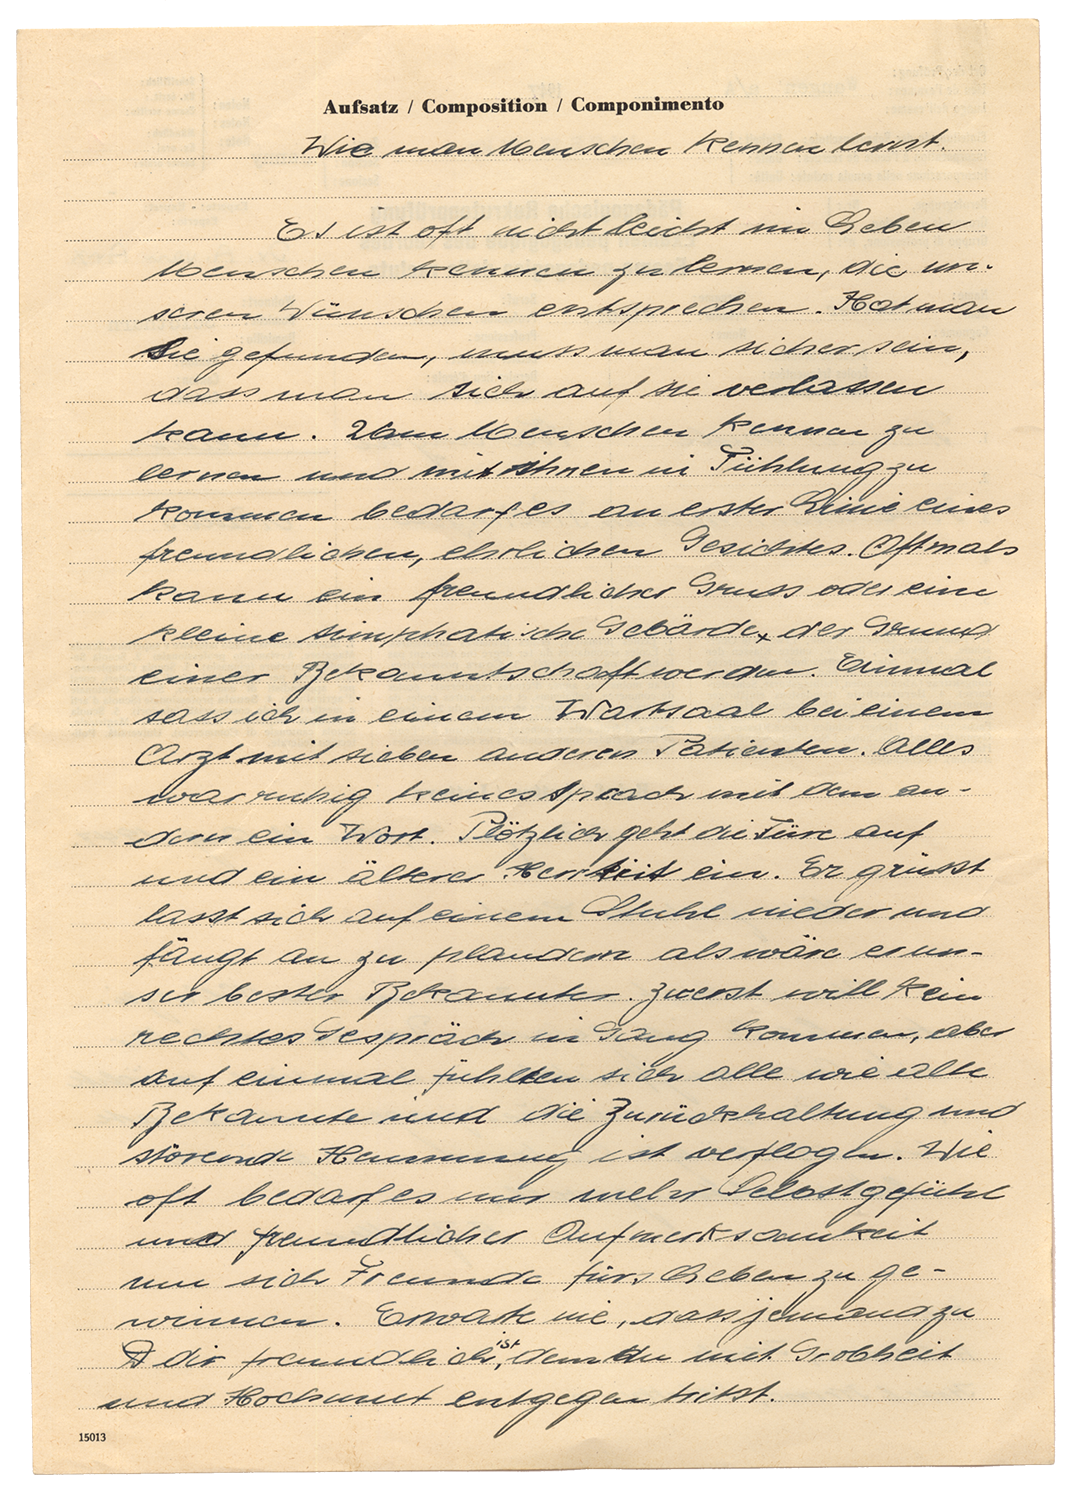 Aufsatz / Composition / Componimento
Wie man Menschen kennen lernt.
Es ist oft nicht leicht im Leben
Menschen kennen zu lernen, die un-
seren Wünschen entsprechen. Hat man
Sie gefunden, muss man sicher sein,
dass man sich auf sie verlassen
kann. Um Menschen kennen zu
lernen und mit ihnen in Fühlung zu
kommen bedarf es an erster Linie eines
freundlichen, ehrlichen Gesichtes. Oftmals
kann ein freundlicher Gruss oder eine
kleine simphatische Gebärde, der Grund
einer Bekanntschaft werden. Einmal
sass ich in einem Wartsaal bei einem
Arzt mit sieben anderen Patienten. Alles
war ruhig keines sprach mit dem an-
dern ein Wort. Plötzlich geht die Türe auf
und ein älterer Herr tritt ein. Er grüsst
lässt sich auf einem Stuhl nieder und
fängt an zu plaudern als wäre er un-
ser bester Bekannter. Zuerst will kein
rechtes Gespräch in Gang kommen, aber
auf einmal fühlten sich alle wie alte
Bekannte und die Zurückhaltung und
störende Hemmung ist verflogen. Wie
oft bedarf es nur mehr Selbstgefühl
und freundlicher Aufmerksamkeit
um sich Freunde fürs Leben zu ge-
winnen. Erwarte nie, dass jemand zu
dir freundlich ist, dem du mit Grobheit
und Hochmut entgegen trittst.
15013